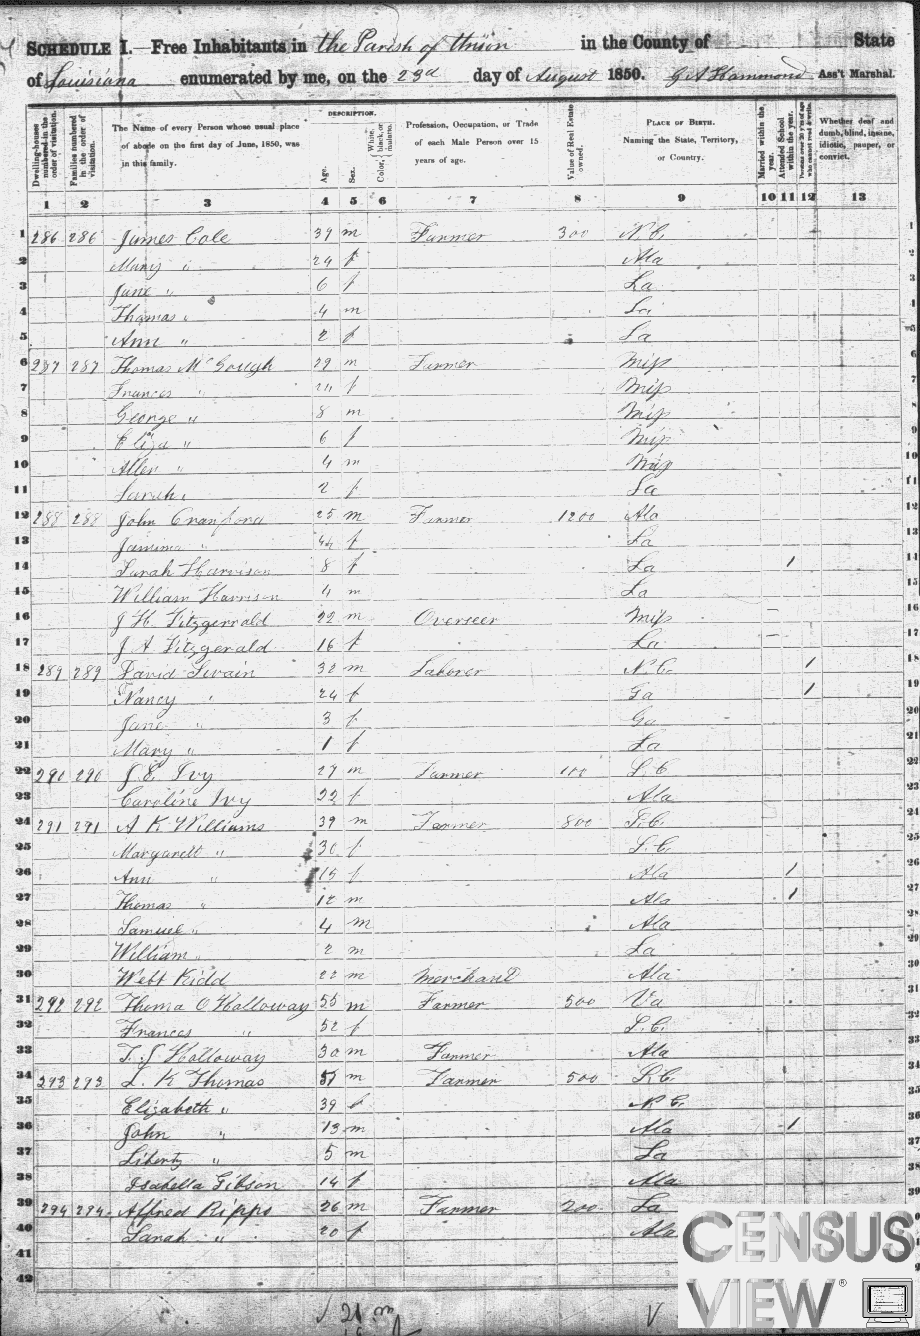 SCHEDULE I.—Free Inhabitants in the Parish of Union in the County of State
of Louisiana enumerated by me, on the 23d day of August 1850. G A Hammond Ass't Marshal.
Dwelling-houses numbered in the order of visitation.
Families numbered in the order of visitation.
The Name of every Person whose usual place of abode on the first day of June, 1850, was in this family.
DESCRIPTION.
Age.
Sex.
Color, White, black, or mulatto.
Profession, Occupation, or Trade of each Male Person over 15 years of age.
Value of Real Estate owned.
PLACE OF BIRTH. Naming the State, Territory, or Country.
Married within the year.
Attended School within the year.
Persons over 20 y'rs of age who cannot read & write.
Whether deaf and dumb, blind, insane, idiotic, pauper, or convict.
1 2 3 4 5 6 7 8 9 10 11 12 13
1 286 286 James Cole 39 m Farmer 300 N.C. 1
2 Mary " 24 f Ala 2
3 Jane " 6 f La 3
4 Thomas " 4 m La 4
5 Ann " 2 f La 5
6 287 287 Thomas McGough 29 m Farmer Miss 6
7 Frances " f Miss 7
8 George " 8 m Miss 8
9 Eliza " 6 f Miss 9
10 Allen " 4 m Miss 10
11 Sarah " 2 f La 11
12 288 288 John Cranford 25 m Farmer 1200 Ala 12
13 Jamima " 44 f La 13
14 Sarah Harrison 8 f La 1 14
15 William Harrison 4 m La 15
16 J H Fitzgerrald 22 m Overseer Miss 16
17 J A Fitzgerald 16 f La 17
18 289 289 David Swain 32 m Laborer N.C. 1 18
19 Nancy " 24 f Ga 1 19
20 Jane " 3 f Ga 20
21 Mary " 1 f La 21
22 290 290 J E Ivy 27 m Farmer 100 S.C 22
23 Caroline Ivy 22 f Ala 23
24 291 291 A K Williams 39 m Farmer 800 S.C. 24
25 Margarett " 30 f S.C. 25
26 Ann " 15 f Ala 1 26
27 Thomas " 12 m Ala 1 27
28 Samuel " 4 m Ala 28
29 William " 2 m La 29
30 Webb Kidd 22 m Merchant Ala 30
31 292 292 Thoma O Holloway 55 m Farmer 500 Va 31
32 Frances " 52 f S.C. 32
33 T. J Holloway 30 m Farmer Ala 33
34 293 293 L. K Thomas 51 m Farmer 500 S.C 34
35 Elizabeth " 39 f N.C. 35
36 John " 13 m Ala 1 36
37 Liberty " 5 m La 37
38 Isabella Gibson 14 f Ala 38
39 294 294 Alfred Pipps 26 m Farmer 200 La 39
40 Sarah " 20 f Ala
41
42
21 m
CENSUS
VIEW®